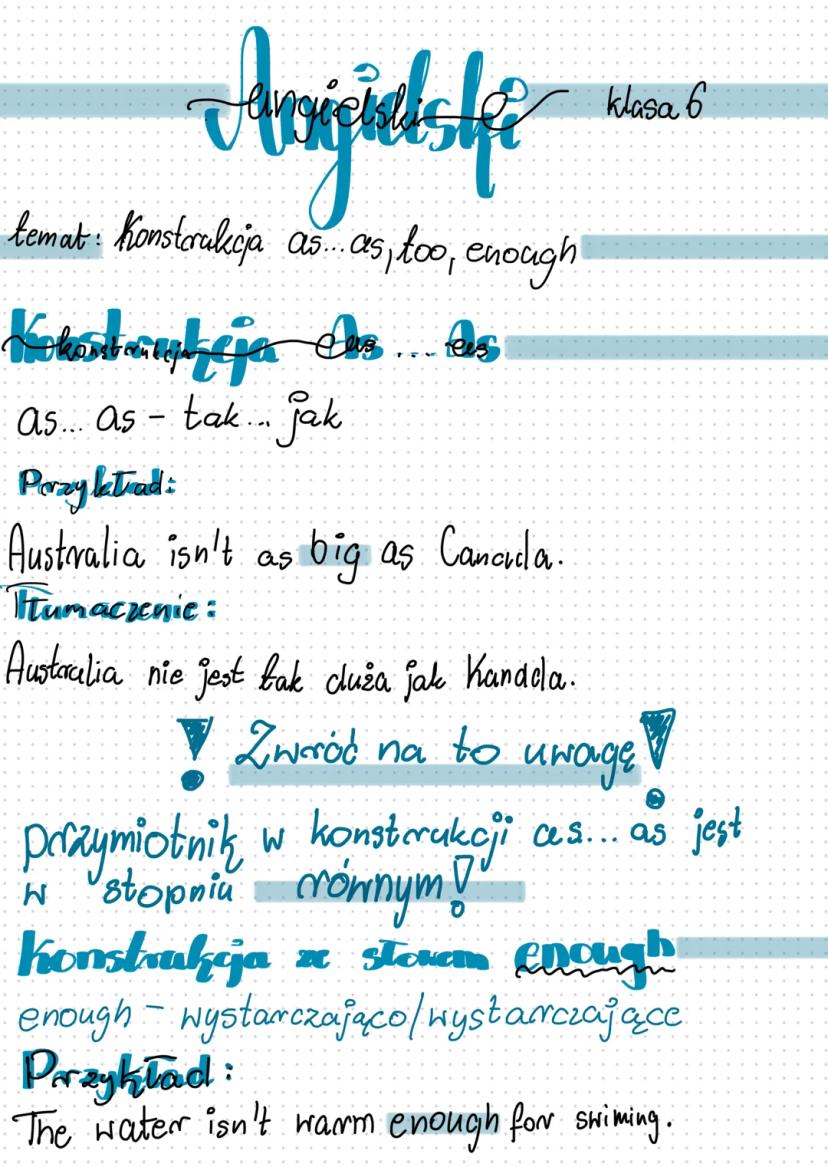 Angielski klasa 6
temat: Konstrukcja as...as, too, enough
Konstrukcja As ... As
as... as - tak... jak
Przykład:
Australia isn't as big as Canada.
Tłumaczenie:
Australia nie jest tak duża jak Kanada.
! Zwróć na to uwagę !
przymiotnik w konstrukcji as... as jest
w stopniu równym!
Konstrukcja ze słowem enough
enough - wystarczająco/wystarczające
Przykład:
The water isn't warm enough for swiming.